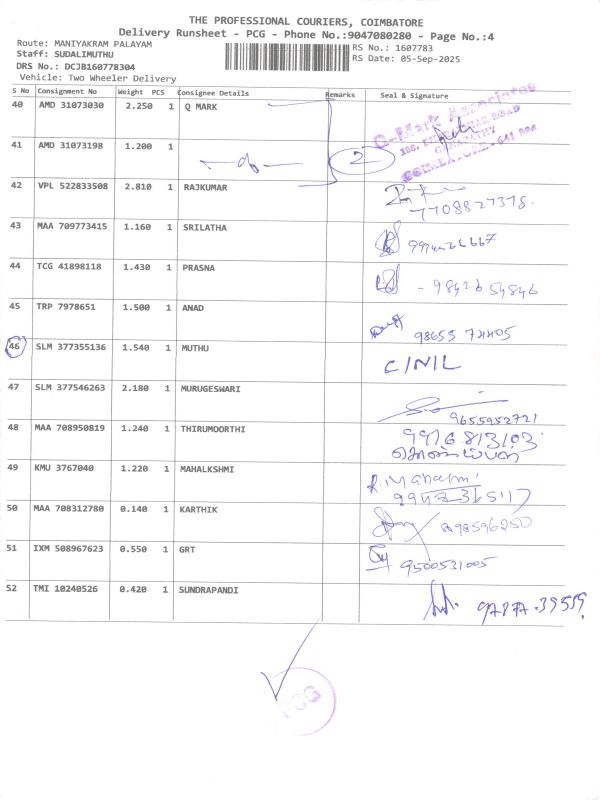 THE PROFESSIONAL COURIERS, COIMBATORE
Delivery Runsheet - PCG - Phone No.:9047080280 - Page No.:4
Route: MANIYAKRAM PALAYAM
Staff: SUDALIMUTHU
DRS No.: DCJB160778304
Vehicle: Two Wheeler Delivery
RS No.: 1607783
RS Date: 05-Sep-2025
S No Consignment No Weight PCS Consignee Details Remarks Seal & Signature
40 AMD 31073030 2.250 1 Q MARK
Q-Mark Associates
41 AMD 31073198 1.200 1 2
COIMBATORE - 641 006
42 VPL 522833508 2.810 1 RAJKUMAR
7708827378.
43 MAA 709773415 1.160 1 SRILATHA
44 TCG 41898118 1.430 1 PRASNA
- 98426 54846
45 TRP 7978651 1.500 1 ANAD
98655 74405
46 SLM 377355136 1.540 1 MUTHU
C/NIL
47 SLM 377546263 2.180 1 MURUGESWARI
9655952721
48 MAA 708950819 1.240 1 THIRUMOORTHI
9976813103
49 KMU 3767040 1.220 1 MAHALKSHMI
50 MAA 708312780 0.140 1 KARTHIK
51 IXM 508967623 0.550 1 GRT
9500531005
52 TMI 10240526 0.420 1 SUNDRAPANDI
PCG